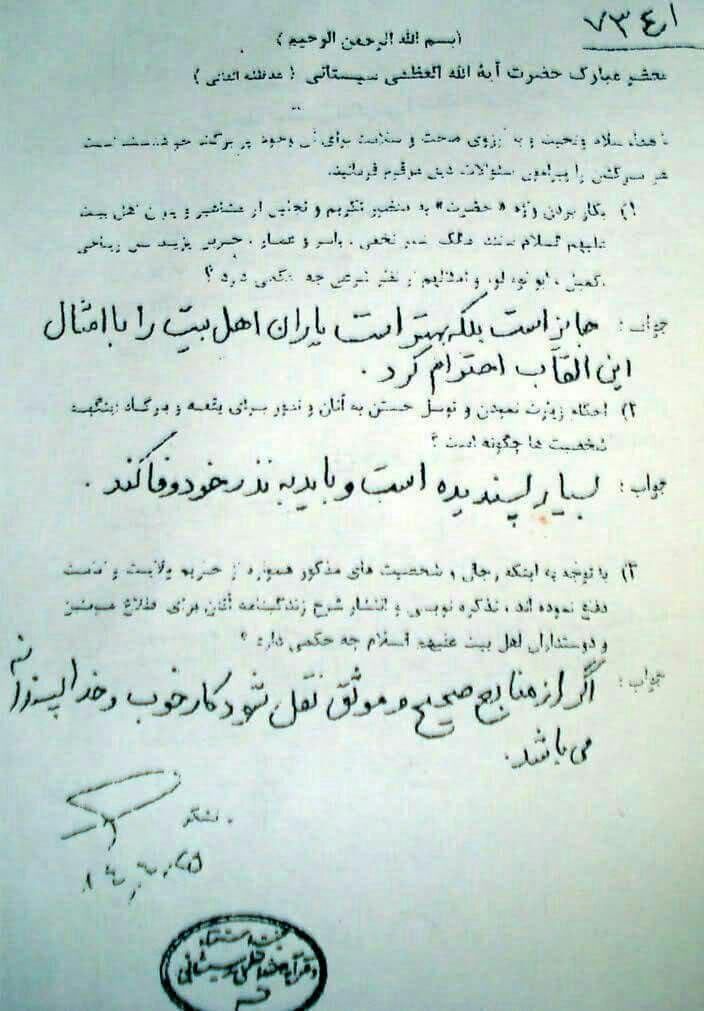 ۷۳۴۱
(بسم الله الرحمن الرحیم)
محضر مبارک حضرت آیة الله العظمی سیستانی (مدظله العالی)
با اهداء سلام و تحیت و به آرزوی صحت و سلامت برای آن وجود پر برکت خواهشمند است
را پیرامون سئوالات ذیل مرقوم فرمائید.
۱) بکار بردن واژه «حضرت» به منظور تکریم و تجلیل از مشاهیر و یاران اهل بیت
علیهم السلام مانند مالک اشتر نخعی، یاسر و عمار، حر بن یزید ریاحی
کمیل، و امثالهم از نظر شرعی چه حکمی دارد؟
جواب: جایز است بلکه بهتر است یاران اهل بیت را با امثال
این القاب احترام کرد.
۲) احکام زیارت نمودن و توسل جستن به آنان و نذور برای بقعه و بارگاه اینگونه
شخصیت ها چگونه است؟
جواب: بسیار پسندیده است و باید به نذر خود وفا کند.
۳) با توجه به اینکه رجال و شخصیت های مذکور همواره از حریم ولایت و امامت
دفاع نموده اند، تذکره نویسی و انتشار شرح زندگینامه آنان برای اطلاع مومنین
و دوستداران اهل بیت علیهم السلام چه حکمی دارد؟
جواب: اگر از منابع صحیح و موثق نقل شود کار خوب و خدا پسندانه
می باشد.
تشکر